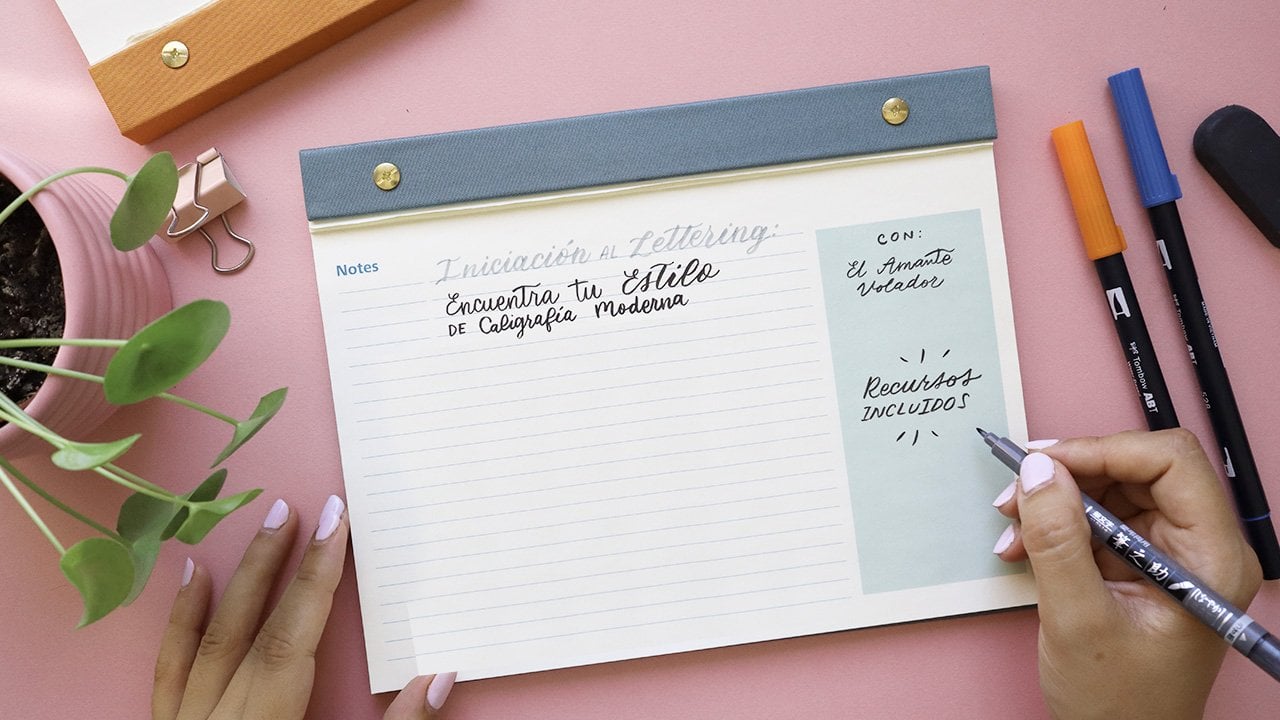 Notes
Iniciación AL Lettering:
Encuentra tu Estilo
DE Caligrafía Moderna
CON:
El Amante
Volador
Recursos
INCLUIDOS
Tombow ABT
Tombow ABT
528
筆之助